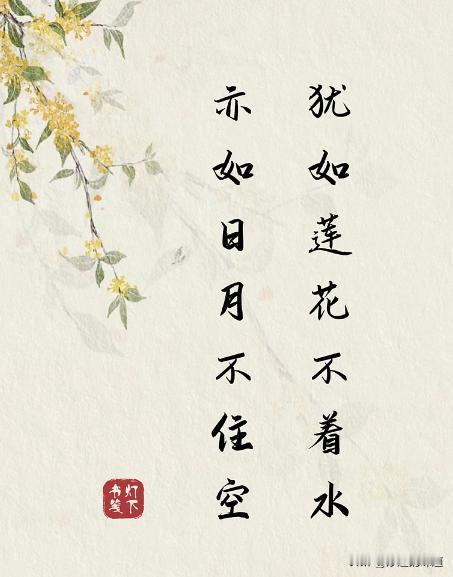 犹如莲花不着水
亦如日月不住空
灯下
书笺